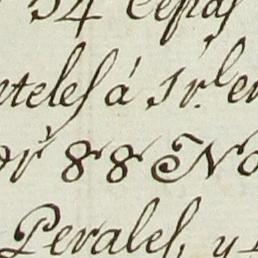 34 Cepas
teles á 1 r.l en
88 No
Perales, y